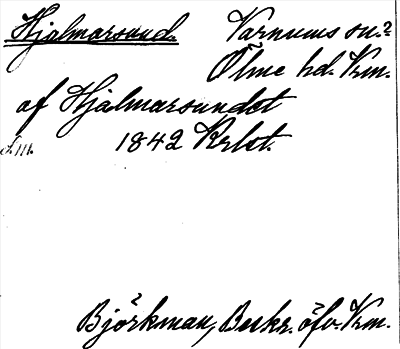 Hjalmarsund. Varnums sn.?
Ölme hd. Vrm.
af Hjälmarsundet
1842 Krbt.
Björkman, Beskr. öfv. Vrm.